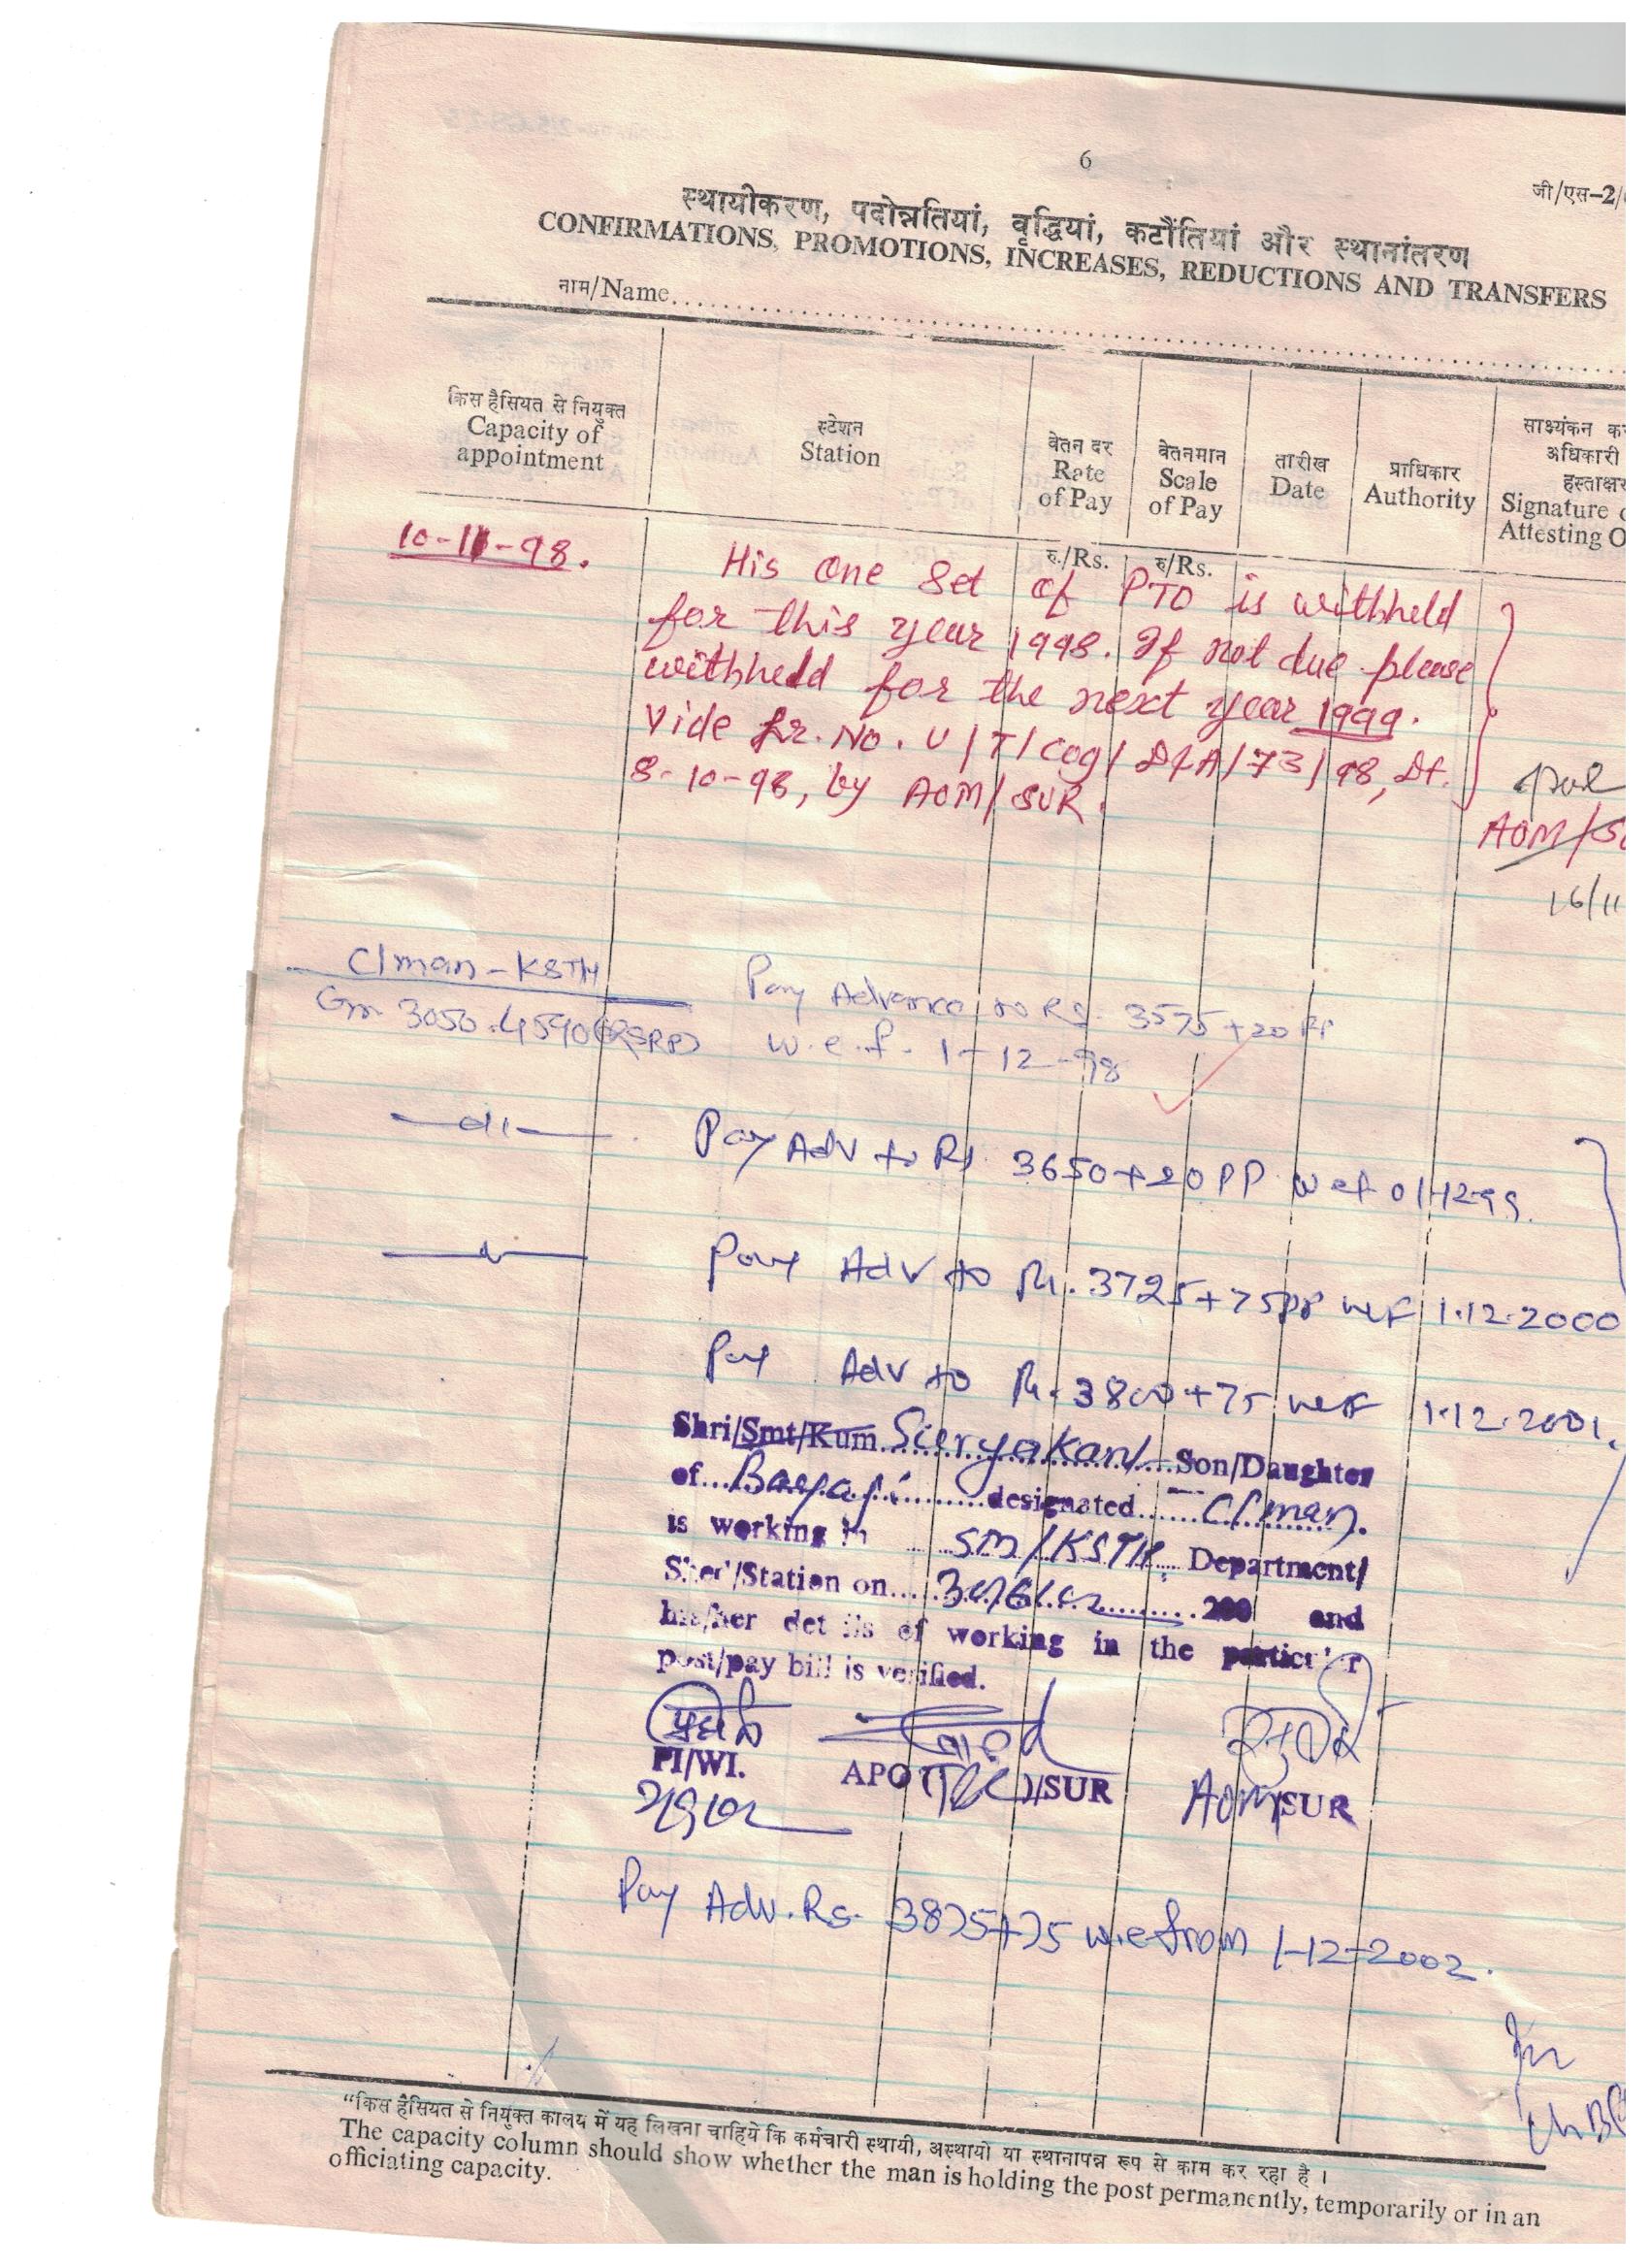 6
जी/एस-2/
स्थायीकरण, पदोन्नतियां, वृद्धियां, कटौंतियां और स्थानांतरण
CONFIRMATIONS, PROMOTIONS, INCREASES, REDUCTIONS AND TRANSFERS
नाम/Name
किस हैसियत से नियुक्त
Capacity of
appointment
स्टेशन
Station
वेतन दर
Rate
of Pay
वेतनमान
Scale
of Pay
तारीख
Date
प्राधिकार
Authority
साक्ष्यंकन
अधिकारी
हस्ताक्षर
Signature
Attesting
रु./Rs. रु/Rs.
10-11-98.
His one Set of PTO is withheld
for this year 1998. If not due please
withheld for the next year 1999.
Vide Lr. No. U/T/Cog/D&A/73/98, Dt.
8-10-98, by AOM/SUR.
AOM/
16/11
C/man-KSTH
3050-4590(RSRP)
Pay Advance to Rs. 3575+20 PP
w.e.f. 1-12-98
Pay Adv to Rs. 3650+20 PP wef 01-12-99.
Pay Adv to Rs. 3725+75 PP wef 1.12.2000
Pay Adv to Rs. 3800+75 wef 1.12.2001.
Shri/Smt/Kum Suryakant Son/Daughter
of designated C/man.
is working in SM/KSTH Department/
Shed/Station on 30/6/02 200 and
his/her details of working in the particular
post/pay bill is verified.
PI/WI.
APO /SUR
AOM/SUR
Pay Adv. Rs. 3875+75 w.e from 1-12-2002.
"किस हैसियत से नियुक्त कालय में यह लिखना चाहिये कि कर्मचारी स्थायी, अस्थायो या स्थानापन्न रूप से काम कर रहा है ।
The capacity column should show whether the man is holding the post permanently, temporarily or in an
officiating capacity.